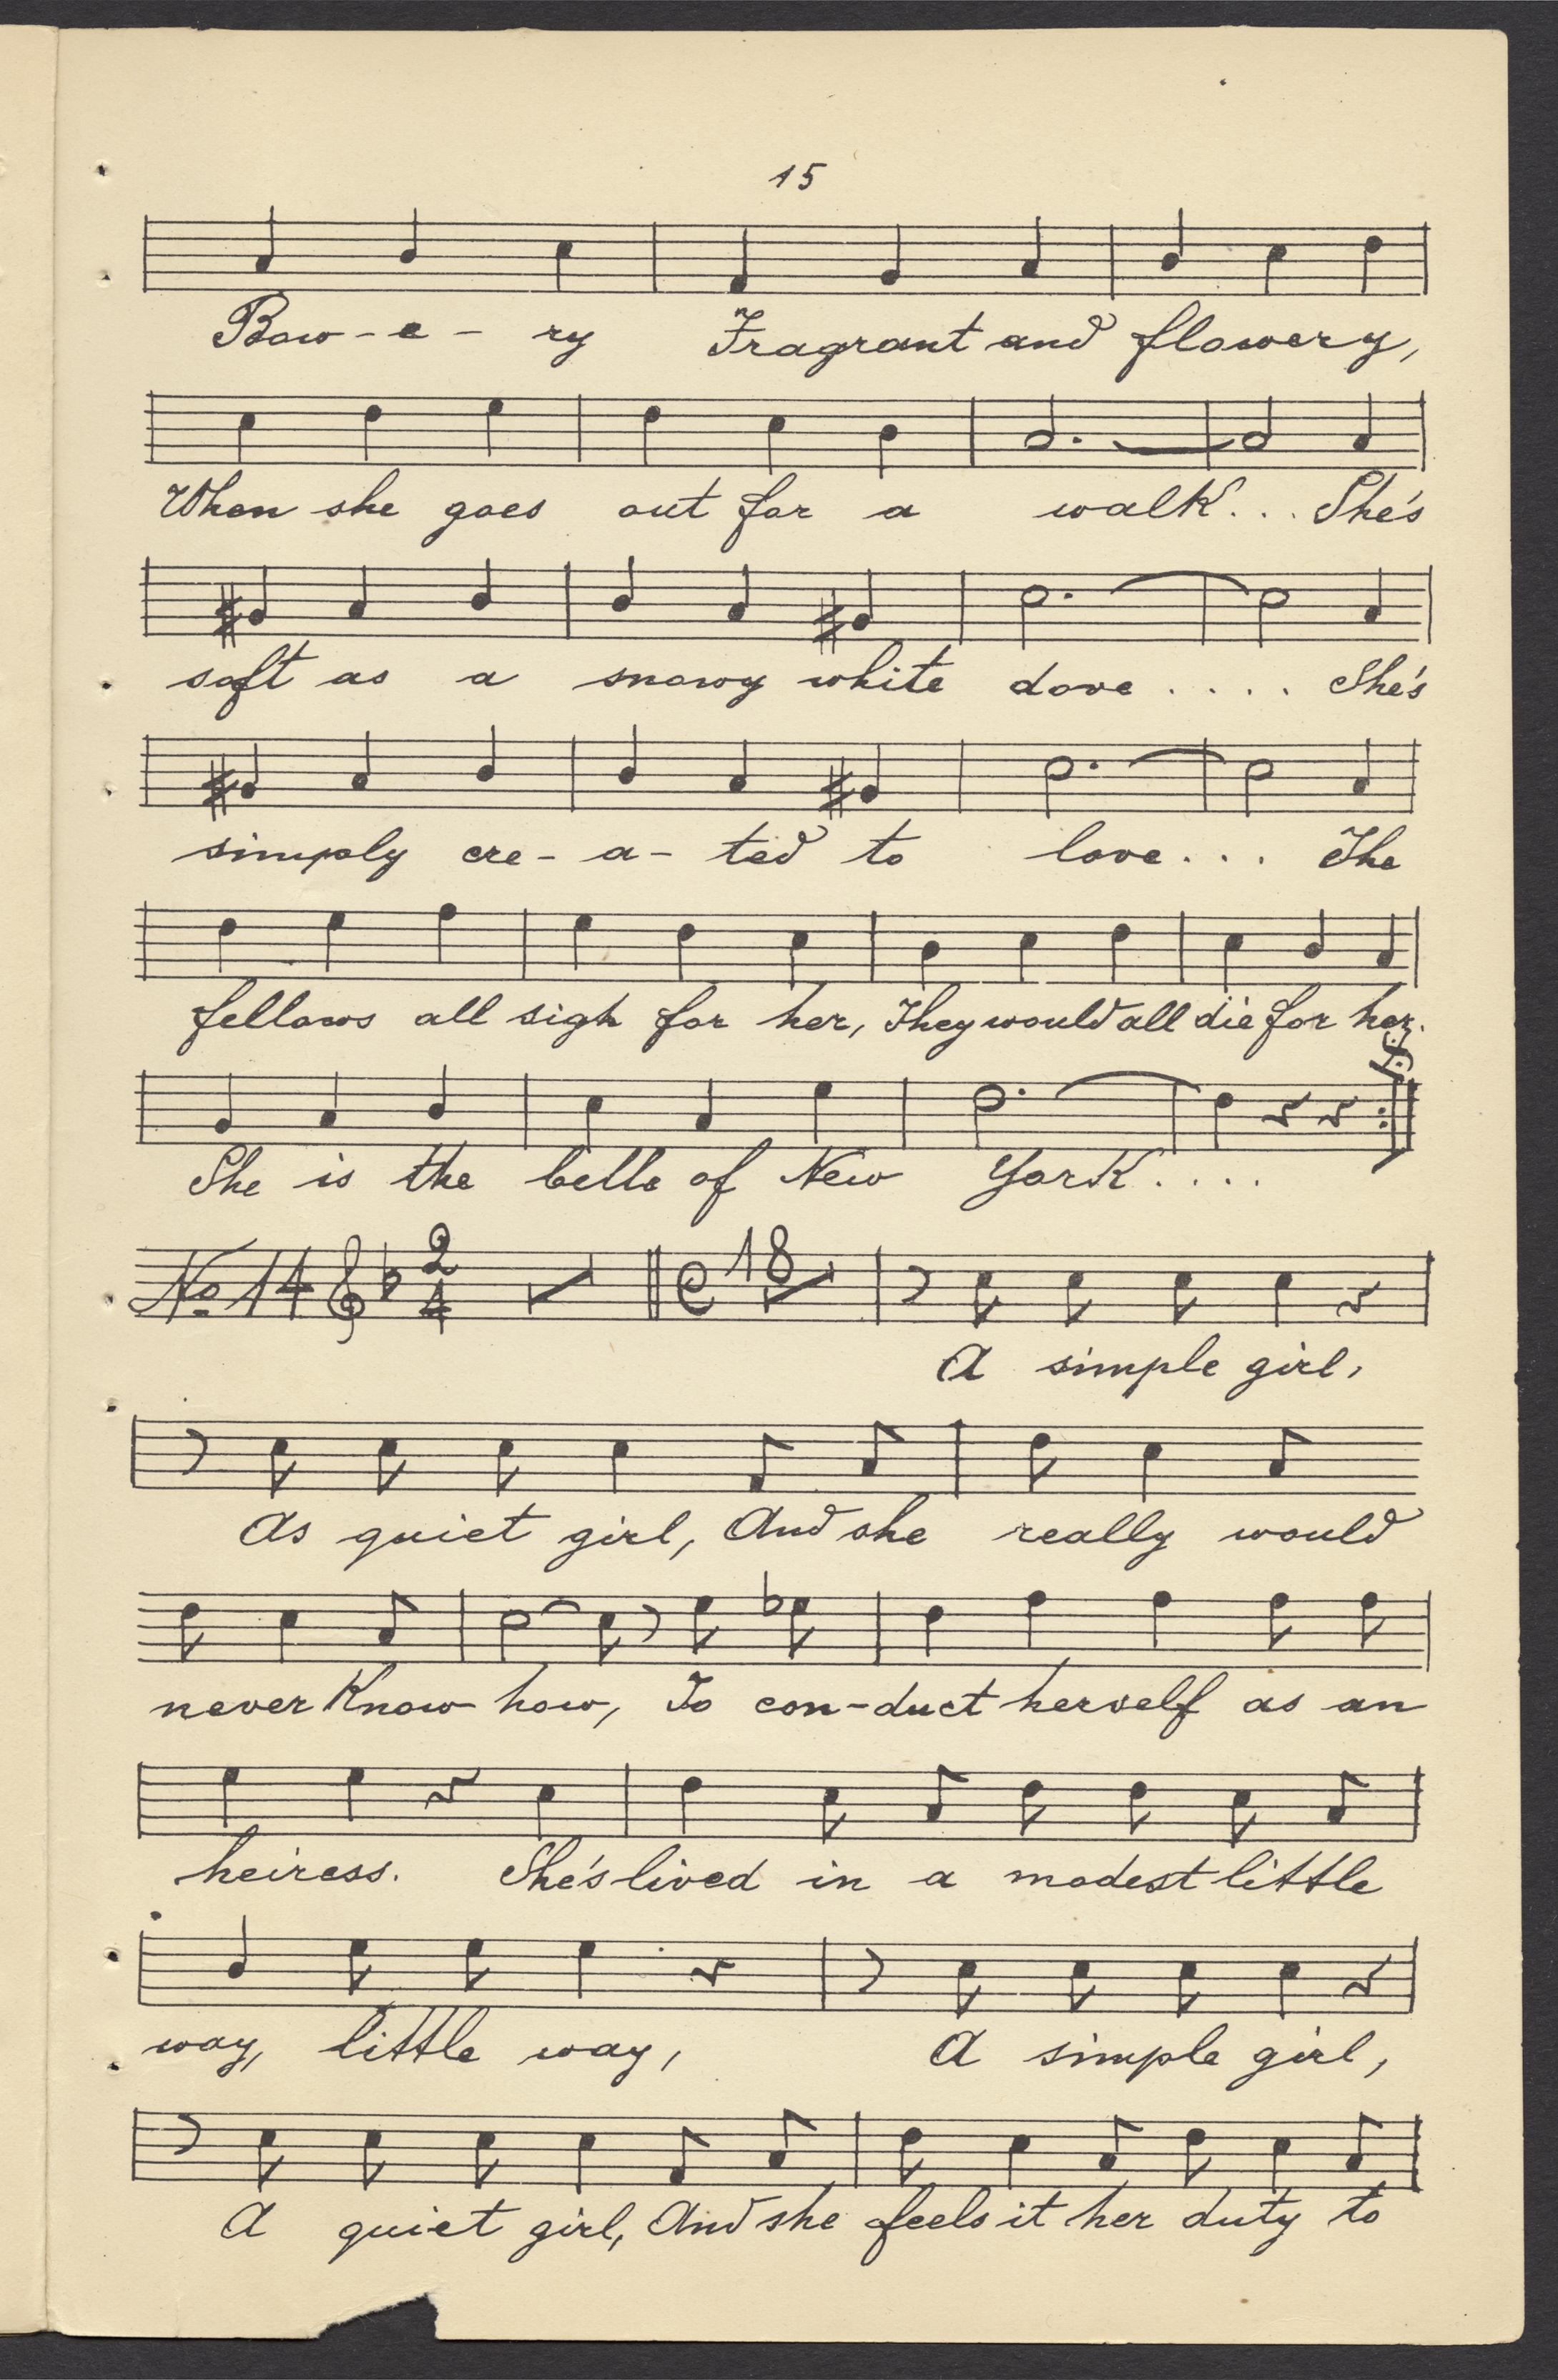 15
Bow-e-ry Fragrant and flowery,
When she goes out for a walk... She's
soft as a snowy white dove.... She's
simply cre-a-ted to love... The
fellows all sigh for her, They would all die for her.
She is the belle of New York....
No 14 2 4 C 18
A simple girl,
As quiet girl, And she really would
never know how, To con-duct herself as an
heiress. She's lived in a modest little
way, little way, A simple girl,
A quiet girl, And she feels it her duty to